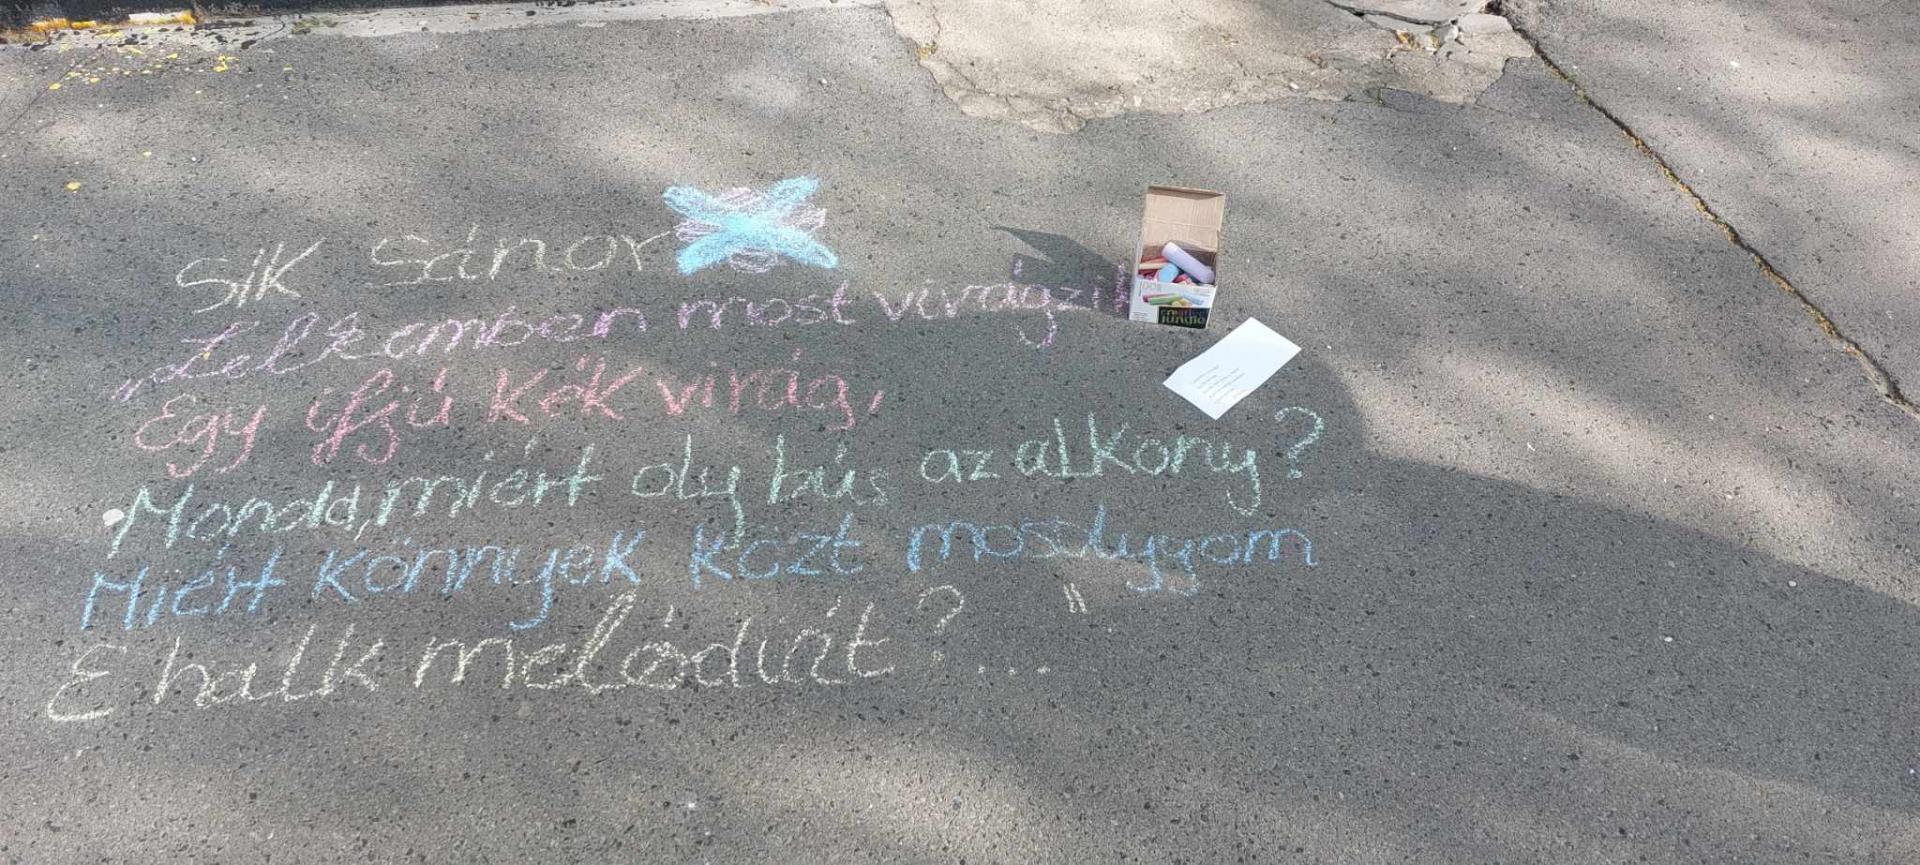 Sík Sánor
„Lelkemben most virágzik
Egy ifjú kék virág,
Mondd, miért oly bús az alkony?
Miért könnyek közt mosolygom
E halk melódiát?..."
creative
jungle